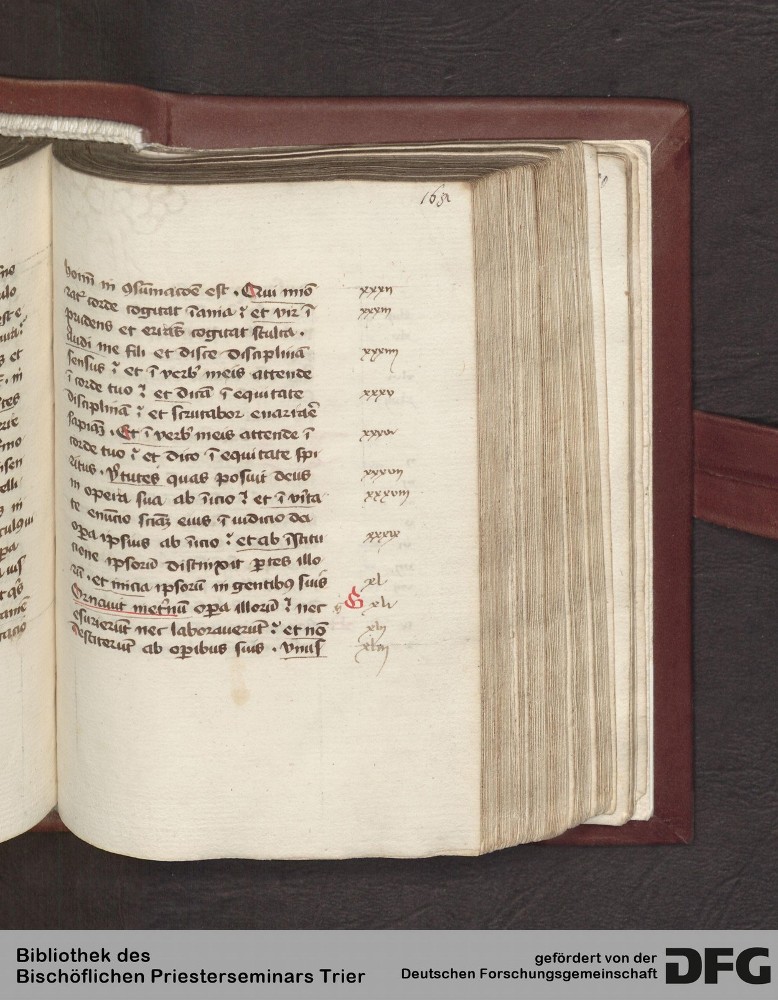 168
homī in ↄsūmacoē est . Qui mīo
rat᷑ corde cogitat īania ꝫ et vir ī
prudens et errās cogitat stulta .
Audi me fili et disce disciplinā
sensus ꝫ et ī verb᷒ meis attende
ī corde tuo ꝫ et dicā ī equitate
disciplinā ꝫ et scrutabor enarrae̅
sapiaꝫ . Et ī verb᷒ meis attende ī
corde tuo ꝫ et dico ī equitate spi
ritus . v᷑tutes quas posuit deus
in opera sua ab īicio ꝫ et ī v᷑ita
te enūcio sciaꝫ eius ī iudicio dei
oꝑa ipsius ab īicio ꝫ et ab īstitu
cione ipsorū distinxit ꝑtes illo
rū . et inicia ipsorū in gentibꝰ suis
Ornauit inet᷑nū oꝑa illorū ꝫ nec
esurierūt nec laborauerūt ꝫ et nō
destiterūt ab oꝑibus suis . vnus᷑
xxxii
xxxiii
xxxiiii
xxxv
xxxvi
xxxvii
xxxviii
xxxix
xl
G xli
xlii
xliii
Bibliothek des
Bischöflichen Priesterseminars Trier
gefördert von der
Deutschen Forschungsgemeinschaft
DFG